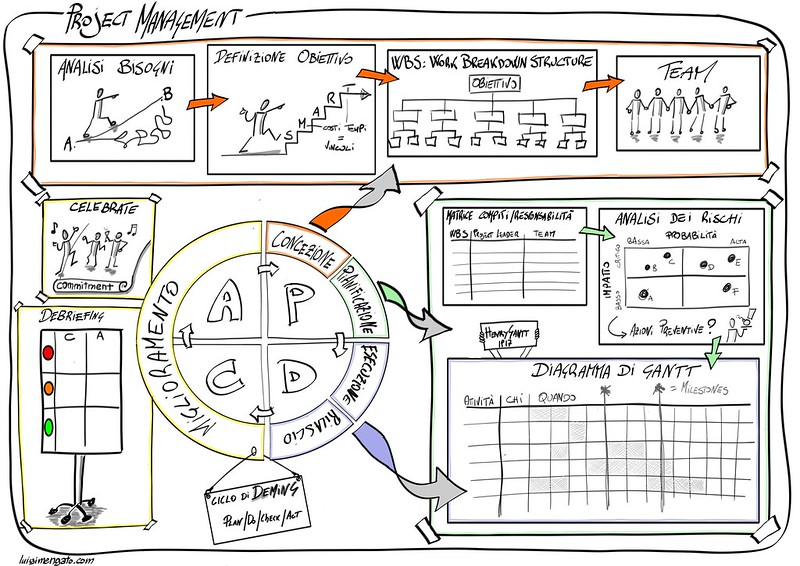 PROJECT MANAGEMENT
ANALISI BISOGNI
A
B
DEFINIZIONE OBIETTIVO
S
M
A
R
T
COSTI TEMPI
=
VINCOLI
WBS: WORK BREAKDOWN STRUCTURE
OBIETTIVO
TEAM
CELEBRATE
commitment
DEBRIEFING
C A
CONCEZIONE
PIANIFICAZIONE
ESECUZIONE
RILASCIO
MIGLIORAMENTO
A P
C D
CICLO DI DEMING
PLAN/DO/CHECK/ACT
MATRICE COMPITI/RESPONSABILITÀ
WBS PROJECT LEADER TEAM
ANALISI DEI RISCHI
PROBABILITÀ
BASSA ALTA
IMPATTO
CRITICO
BASSO
B C D E
A F
AZIONI PREVENTIVE?
HENRY GANTT
1917
DIAGRAMMA DI GANTT
= MILESTONES
ATIVITÀ CHI QUANDO
luigimengato.com